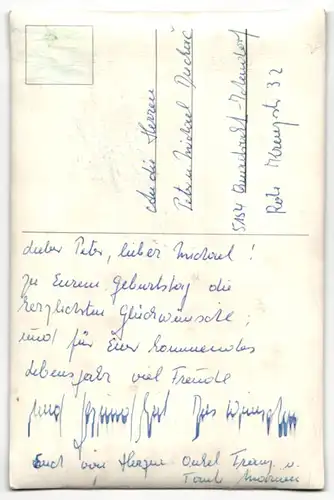 An die Herren
Peter u. Michael
5154
Rote Kreuzstr 32
Lieber Peter, lieber Michael!
zu Eurem Geburtstag die
herzlichsten Glückwünsche,
und für Euer kommendes
Lebensjahr viel Freude
und Gesundheit Das wünschen
Euch von Herzen Onkel Franz u.
Tante